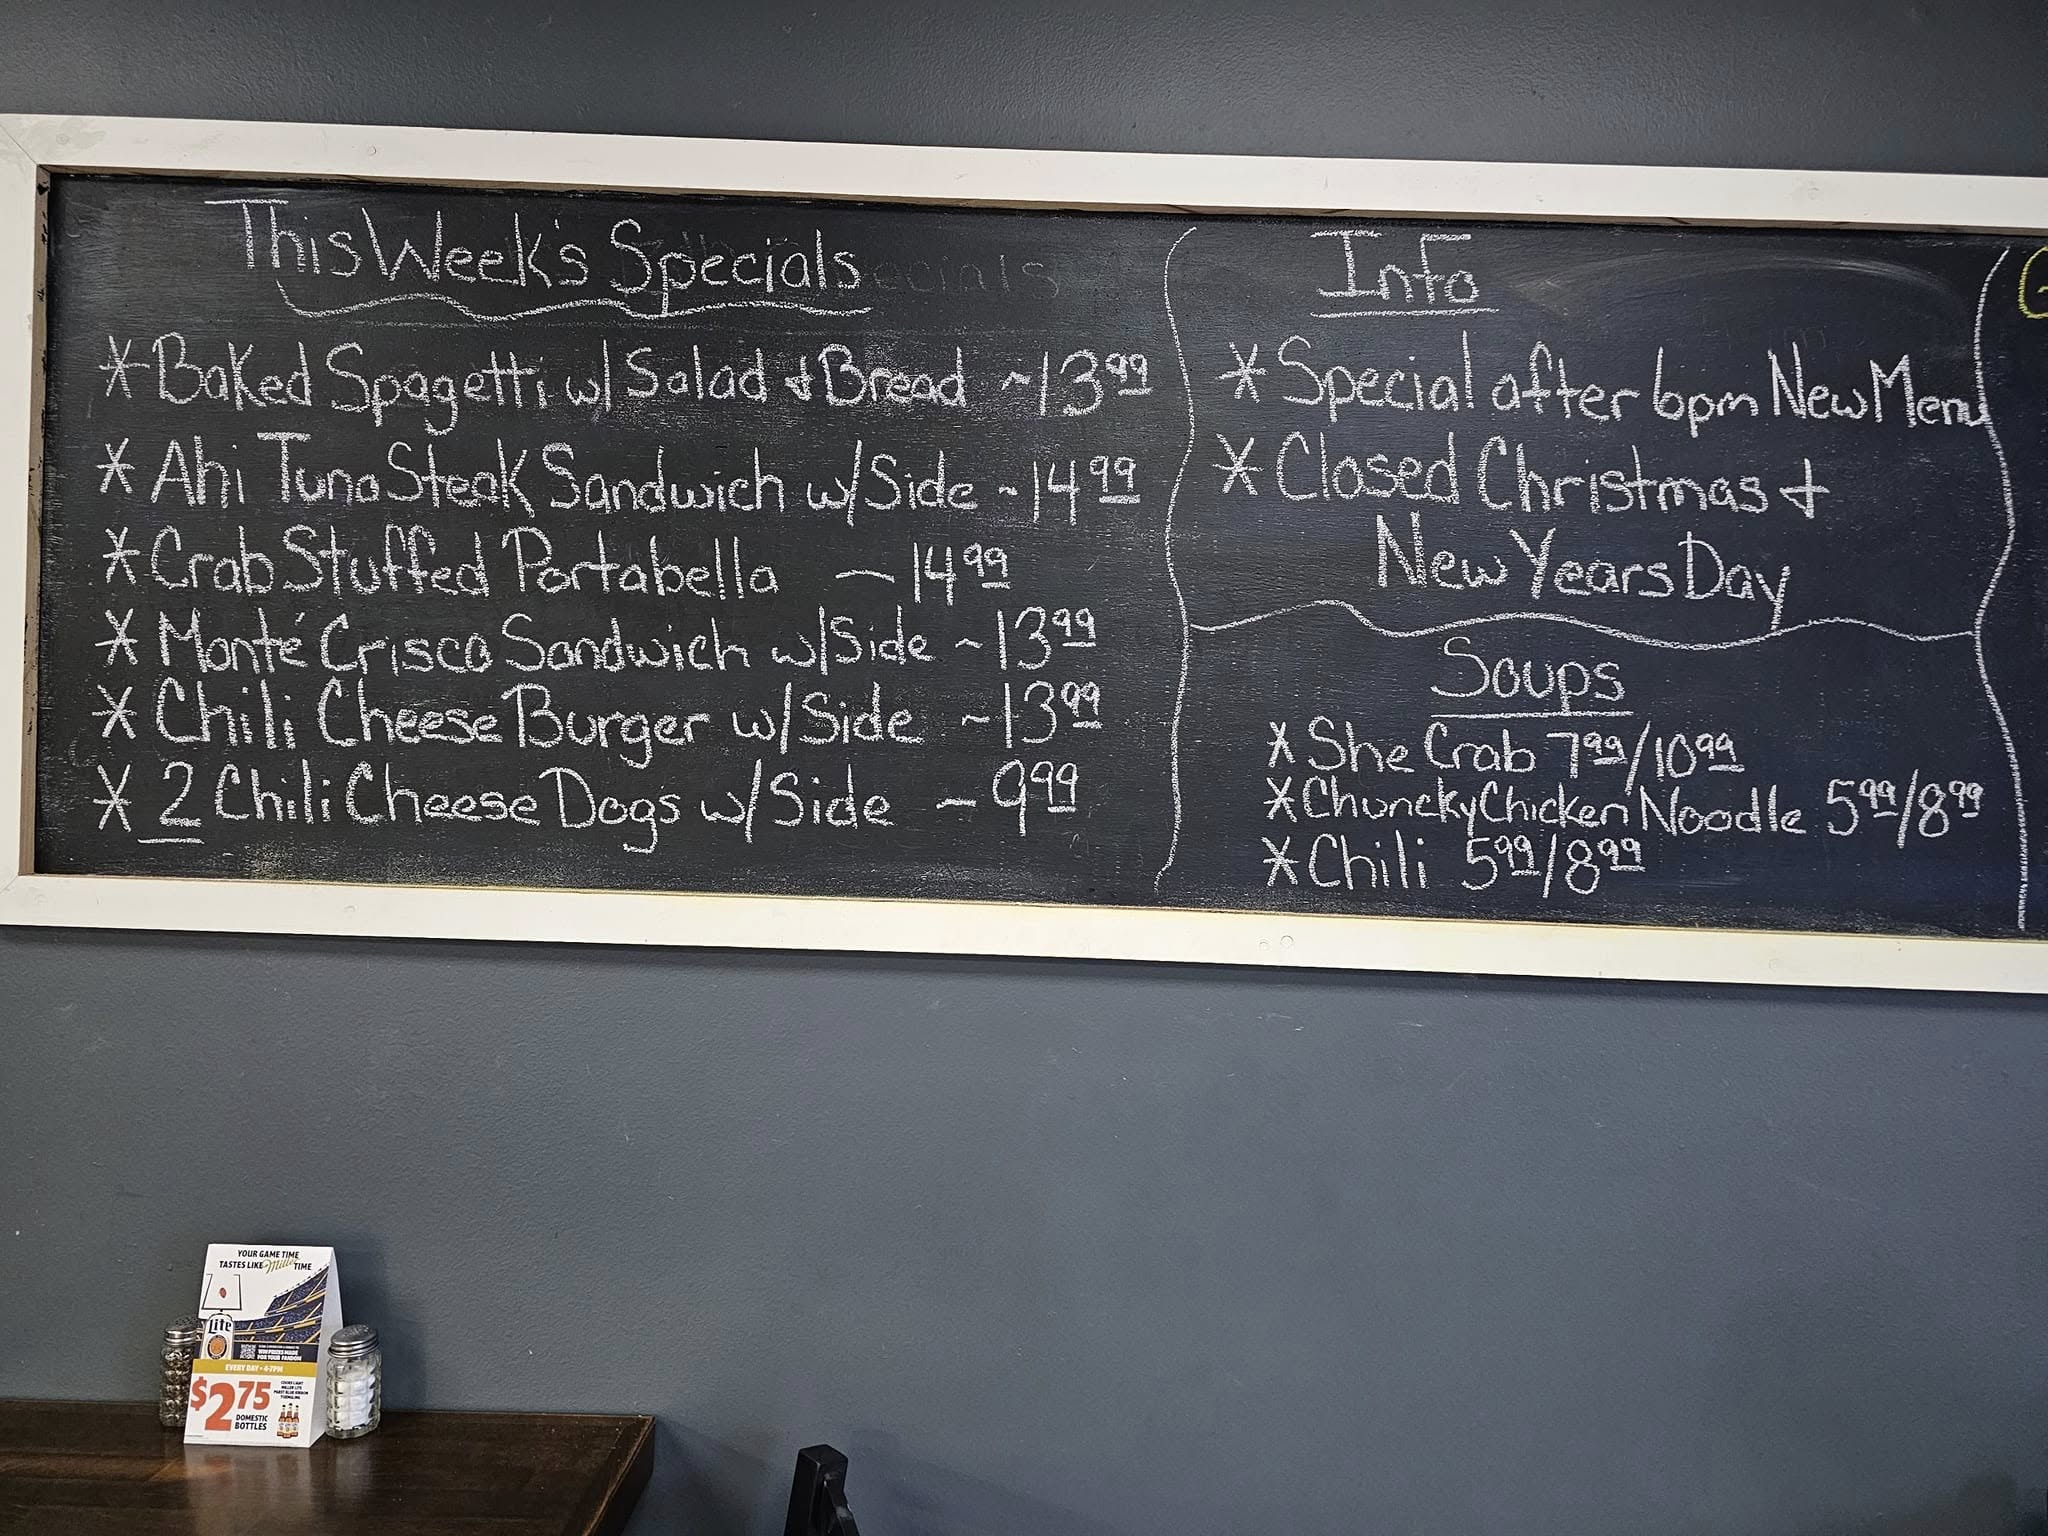 This Week's Specials
* Baked Spagetti w/ Salad & Bread ~ 13.99
* Ahi Tuna Steak Sandwich w/ Side ~ 14.99
* Crab Stuffed Portabella — 14.99
* Monté Crisco Sandwich w/ Side ~ 13.99
* Chili Cheese Burger w/ Side ~ 13.99
* 2 Chili Cheese Dogs w/ Side ~ 9.99
Info
* Special after 6pm New Menu
* Closed Christmas &
New Years Day
Soups
* She Crab 7.99/10.99
* Chuncky Chicken Noodle 5.99/8.99
* Chili 5.99/8.99
YOUR GAME TIME
TASTES LIKE Miller TIME
Lite
WIN PRIZES MADE
FOR YOUR FANDOM
EVERY DAY • 4-7PM
$2.75
COORS LIGHT
MILLER LITE
PABST BLUE RIBBON
YUENGLING
DOMESTIC
BOTTLES